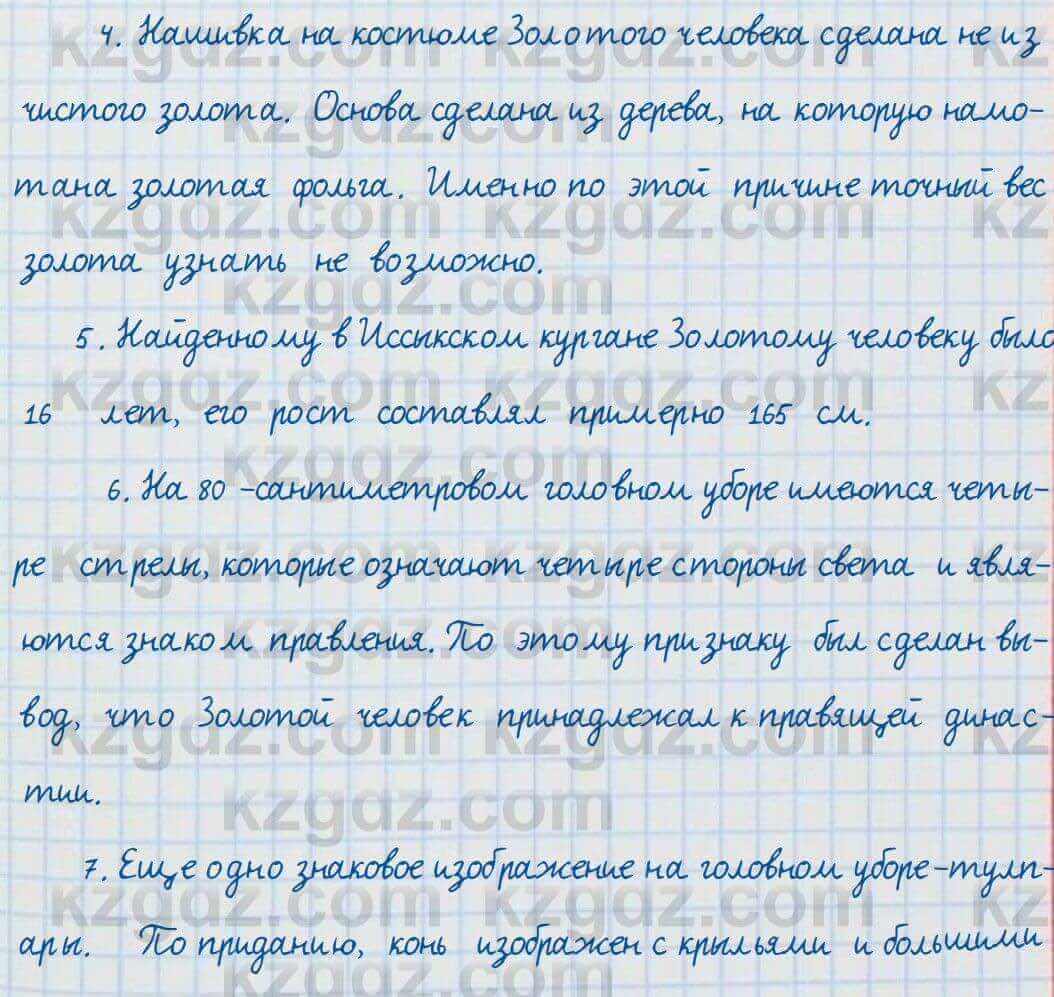 4. Нашивка на костюме Золотого человека сделана не из
чистого золота. Основа сделана из дерева, на которую намо-
тана золотая фольга. Именно по этой причине точный вес
золота узнать не возможно.
5. Найденному в Иссыкском кургане Золотому человеку было
16 лет, его рост составлял примерно 165 см.
6. На 80 -сантиметровом головном уборе имеются четы-
ре стрелы, которые означают четыре стороны света и явля-
ются знаком правления. По этому признаку был сделан вы-
вод, что Золотой человек принадлежал к правящей динас-
тии.
7. Еще одно знаковое изображение на головном уборе-тулп-
ары. По приданию, конь изображен с крыльями и большими
kzgdz.com